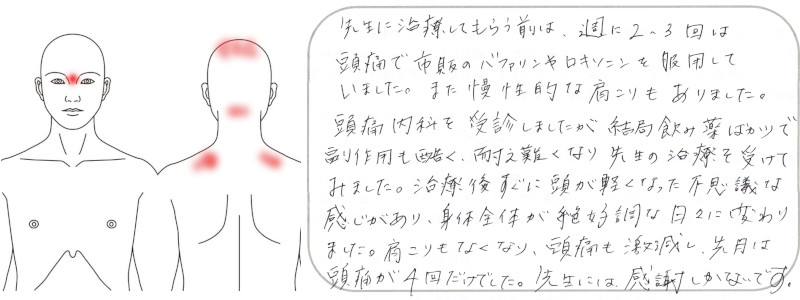 先生に治療してもらう前は、週に2~3回は
頭痛で市販のバファリンやロキソニンを服用して
いました。また慢性的な肩こりもありました。
頭痛内科を受診しましたが結局飲み薬ばかりで
副作用も酷く、耐え難くなり先生の治療を受けて
みました。治療後すぐに頭が軽くなった不思議な
感じがあり、身体全体が絶好調な日々に変わり
ました。肩こりもなくなり、頭痛も激減し、先月は
頭痛が4回だけでした。先生には、感謝しかないです。